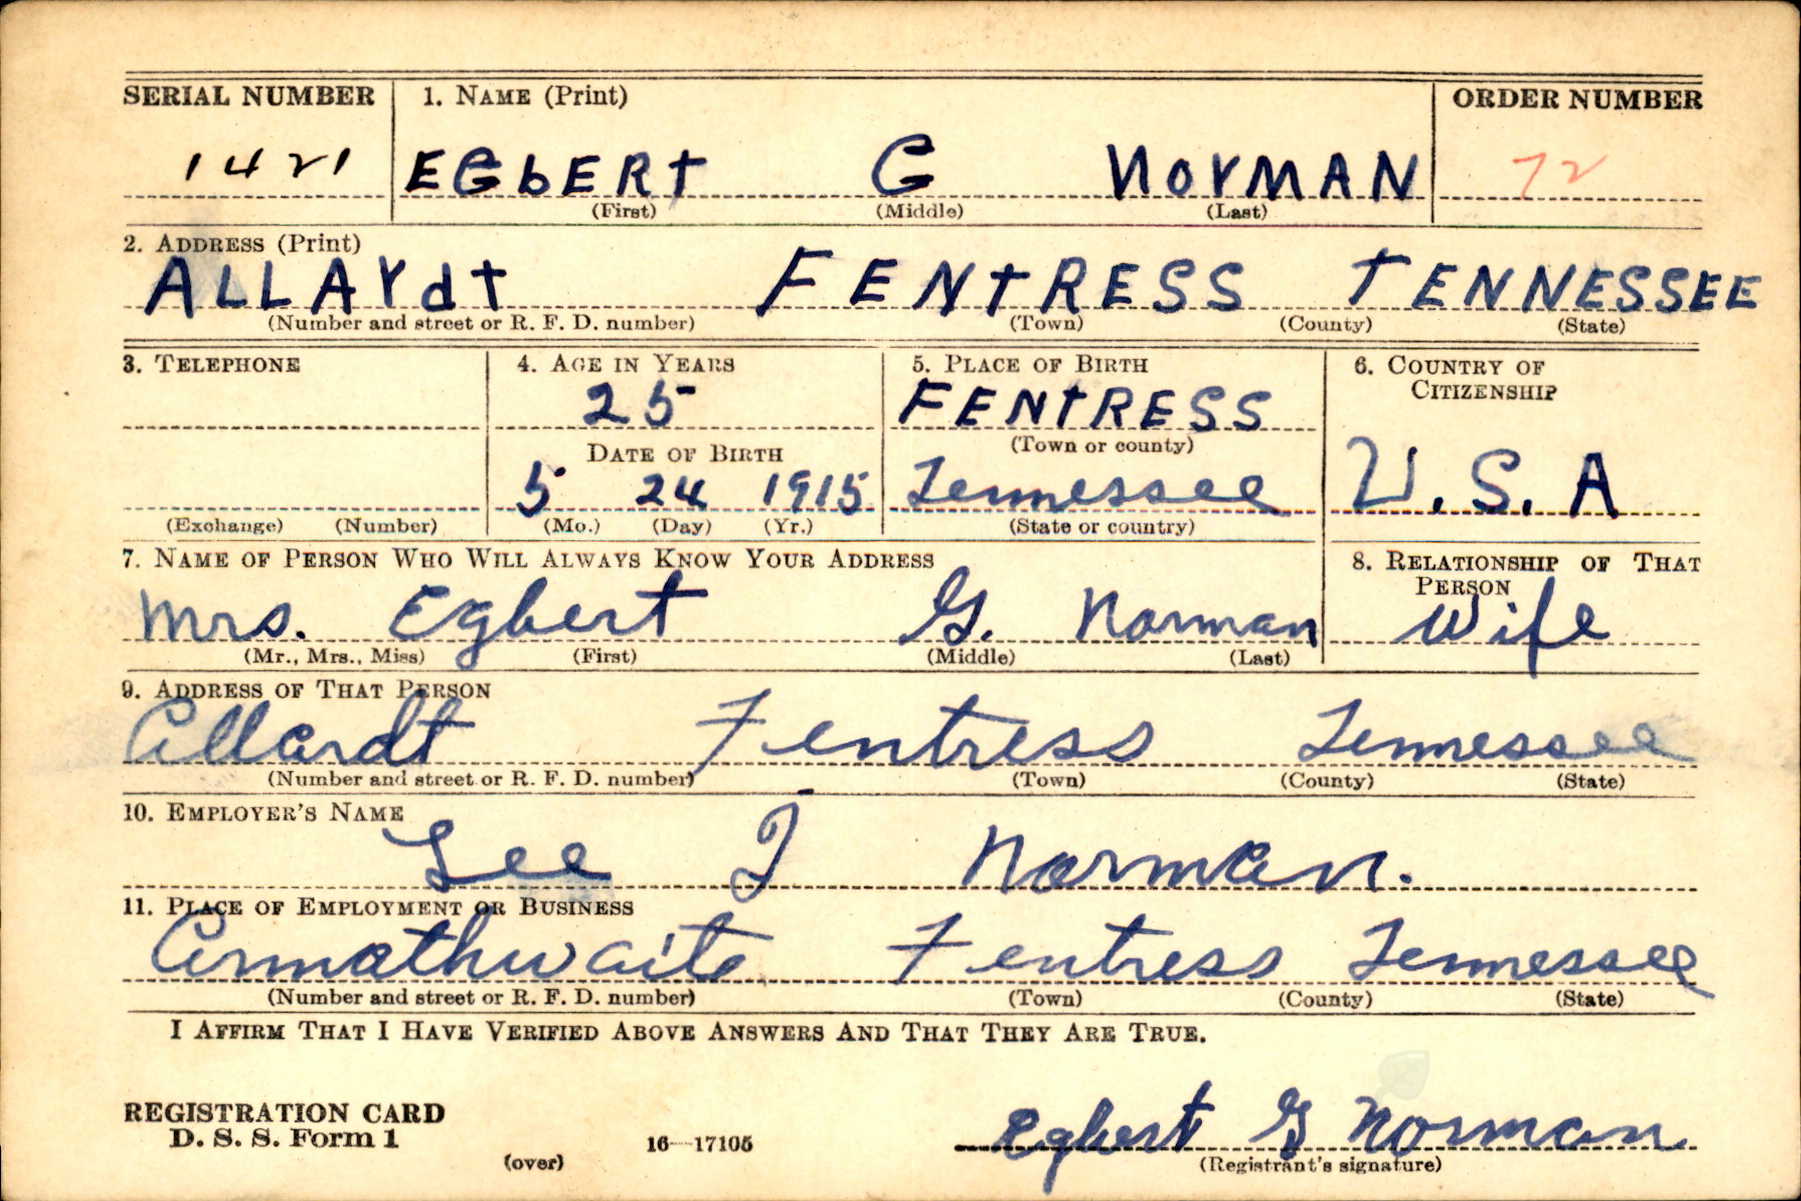 SERIAL NUMBER 1. NAME (Print) ORDER NUMBER
1421 EGbERt G NorMAN 72
(First) (Middle) (Last)
2. ADDRESS (Print)
ALLArdt FENtRESS TENNESSEE
(Number and street or R. F. D. number) (Town) (County) (State)
3. TELEPHONE 4. AGE IN YEARS 5. PLACE OF BIRTH 6. COUNTRY OF CITIZENSHIP
25 FENtRESS
DATE OF BIRTH (Town or county)
5 24 1915 Tennessee U.S.A
(Exchange) (Number) (Mo.) (Day) (Yr.) (State or country)
7. NAME OF PERSON WHO WILL ALWAYS KNOW YOUR ADDRESS 8. RELATIONSHIP OF THAT PERSON
Mrs. Egbert G. Norman Wife
(Mr., Mrs., Miss) (First) (Middle) (Last)
9. ADDRESS OF THAT PERSON
Allardt Fentress Tennessee
(Number and street or R. F. D. number) (Town) (County) (State)
10. EMPLOYER'S NAME
Lee J Norman.
11. PLACE OF EMPLOYMENT OR BUSINESS
Armathwaite Fentress Tennessee
(Number and street or R. F. D. number) (Town) (County) (State)
I AFFIRM THAT I HAVE VERIFIED ABOVE ANSWERS AND THAT THEY ARE TRUE.
REGISTRATION CARD
D. S. S. Form 1 16—17105 Egbert G Norman
(over) (Registrant's signature)